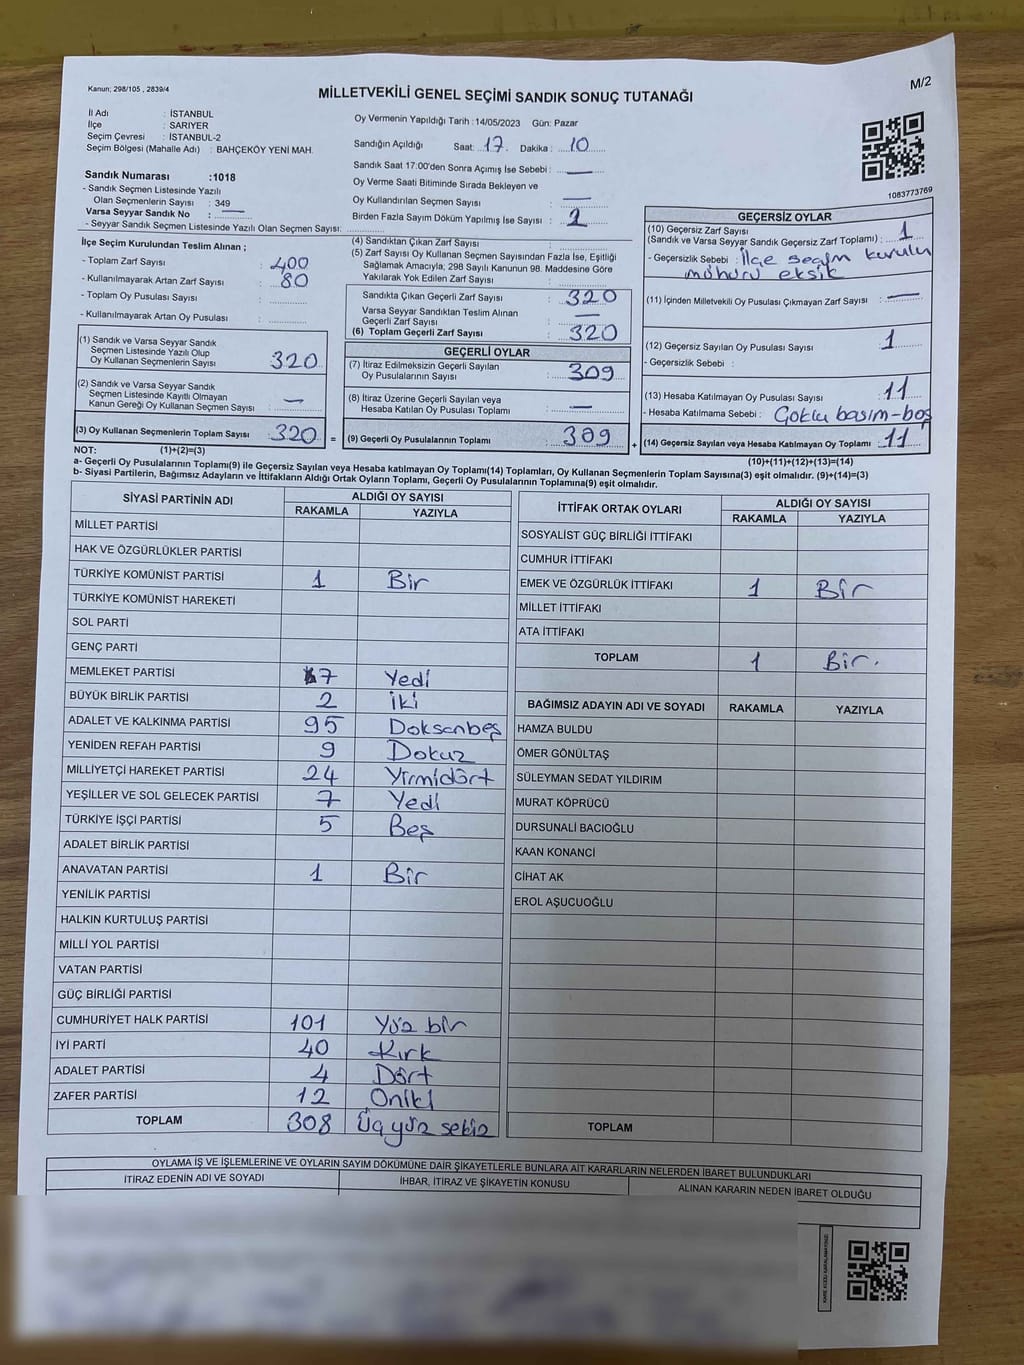 Kanun; 298/105 , 2839/4
MİLLETVEKİLİ GENEL SEÇİMİ SANDIK SONUÇ TUTANAĞI
M/2
İl Adı : İSTANBUL
İlçe : SARIYER
Seçim Çevresi : İSTANBUL-2
Seçim Bölgesi (Mahalle Adı) : BAHÇEKÖY YENİ MAH.
Oy Vermenin Yapıldığı Tarih : 14/05/2023 Gün: Pazar
Sandığın Açıldığı Saat: 17 Dakika: 10
Sandık Saat 17:00'den Sonra Açılmış İse Sebebi : —
Oy Verme Saati Bitiminde Sırada Bekleyen ve
Oy Kullandırılan Seçmen Sayısı : —
Birden Fazla Sayım Döküm Yapılmış İse Sayısı :
1083773769
Sandık Numarası :1018
- Sandık Seçmen Listesinde Yazılı
Olan Seçmenlerin Sayısı : 349
Varsa Seyyar Sandık No : —
- Seyyar Sandık Seçmen Listesinde Yazılı Olan Seçmen Sayısı:
İlçe Seçim Kurulundan Teslim Alınan ;
- Toplam Zarf Sayısı : 400
- Kullanılmayarak Artan Zarf Sayısı : 80
- Toplam Oy Pusulası Sayısı :
- Kullanılmayarak Artan Oy Pusulası :
(1) Sandık ve Varsa Seyyar Sandık
Seçmen Listesinde Yazılı Olup
Oy Kullanan Seçmenlerin Sayısı : 320
(2) Sandık ve Varsa Seyyar Sandık
Seçmen Listesinde Kayıtlı Olmayan
Kanun Gereği Oy Kullanan Seçmen Sayısı : —
(3) Oy Kullanan Seçmenlerin Toplam Sayısı : 320
(4) Sandıktan Çıkan Zarf Sayısı :
(5) Zarf Sayısı Oy Kullanan Seçmen Sayısından Fazla İse, Eşitliği
Sağlamak Amacıyla; 298 Sayılı Kanunun 98. Maddesine Göre
Yakılarak Yok Edilen Zarf Sayısı :
Sandıkta Çıkan Geçerli Zarf Sayısı : 320
Varsa Seyyar Sandıktan Teslim Alınan
Geçerli Zarf Sayısı : —
(6) Toplam Geçerli Zarf Sayısı : 320
GEÇERLİ OYLAR
(7) İtiraz Edilmeksizin Geçerli Sayılan
Oy Pusulalarının Sayısı : 309
(8) İtiraz Üzerine Geçerli Sayılan veya
Hesaba Katılan Oy Pusulası Toplamı : —
= (9) Geçerli Oy Pusulalarının Toplamı : 309
GEÇERSİZ OYLAR
(10) Geçersiz Zarf Sayısı
(Sandık ve Varsa Seyyar Sandık Geçersiz Zarf Toplamı) : 1
- Geçersizlik Sebebi : İlçe seçim kurulu
mühürü eksik
(11) İçinden Milletvekili Oy Pusulası Çıkmayan Zarf Sayısı : —
(12) Geçersiz Sayılan Oy Pusulası Sayısı : 1
- Geçersizlik Sebebi :
(13) Hesaba Katılmayan Oy Pusulası Sayısı : 11
- Hesaba Katılmama Sebebi : Çoklu basım-boş
+ (14) Geçersiz Sayılan veya Hesaba Katılmayan Oy Toplamı : 11
NOT: (1)+(2)=(3)
(10)+(11)+(12)+(13)=(14)
a- Geçerli Oy Pusulalarının Toplamı(9) ile Geçersiz Sayılan veya Hesaba katılmayan Oy Toplamı(14) Toplamları, Oy Kullanan Seçmenlerin Toplam Sayısına(3) eşit olmalıdır. (9)+(14)=(3)
b- Siyasi Partilerin, Bağımsız Adayların ve İttifakların Aldığı Ortak Oyların Toplamı, Geçerli Oy Pusulalarının Toplamına(9) eşit olmalıdır.
SİYASİ PARTİNİN ADI ALDIĞI OY SAYISI
RAKAMLA YAZIYLA
MİLLET PARTİSİ
HAK VE ÖZGÜRLÜKLER PARTİSİ
TÜRKİYE KOMÜNİST PARTİSİ 1 Bir
TÜRKİYE KOMÜNİST HAREKETİ
SOL PARTİ
GENÇ PARTİ
MEMLEKET PARTİSİ 7 Yedi
BÜYÜK BİRLİK PARTİSİ 2 İki
ADALET VE KALKINMA PARTİSİ 95 Doksanbeş
YENİDEN REFAH PARTİSİ 9 Dokuz
MİLLİYETÇİ HAREKET PARTİSİ 24 Yirmidört
YEŞİLLER VE SOL GELECEK PARTİSİ 7 Yedi
TÜRKİYE İŞÇİ PARTİSİ 5 Beş
ADALET BİRLİK PARTİSİ
ANAVATAN PARTİSİ 1 Bir
YENİLİK PARTİSİ
HALKIN KURTULUŞ PARTİSİ
MİLLİ YOL PARTİSİ
VATAN PARTİSİ
GÜÇ BİRLİĞİ PARTİSİ
CUMHURİYET HALK PARTİSİ 101 Yüz bir
İYİ PARTİ 40 Kırk
ADALET PARTİSİ 4 Dört
ZAFER PARTİSİ 12 Oniki
TOPLAM 308 Üçyüz sekiz
İTTİFAK ORTAK OYLARI ALDIĞI OY SAYISI
RAKAMLA YAZIYLA
SOSYALİST GÜÇ BİRLİĞİ İTTİFAKI
CUMHUR İTTİFAKI
EMEK VE ÖZGÜRLÜK İTTİFAKI 1 Bir
MİLLET İTTİFAKI
ATA İTTİFAKI
TOPLAM 1 Bir.
BAĞIMSIZ ADAYIN ADI VE SOYADI RAKAMLA YAZIYLA
HAMZA BULDU
ÖMER GÖNÜLTAŞ
SÜLEYMAN SEDAT YILDIRIM
MURAT KÖPRÜCÜ
DURSUNALİ BACIOĞLU
KAAN KONANCİ
CİHAT AK
EROL AŞUCUOĞLU
TOPLAM
OYLAMA İŞ VE İŞLEMLERİNE VE OYLARIN SAYIM DÖKÜMÜNE DAİR ŞİKAYETLERLE BUNLARA AİT KARARLARIN NELERDEN İBARET BULUNDUKLARI
İTİRAZ EDENİN ADI VE SOYADI İHBAR, İTİRAZ VE ŞİKAYETİN KONUSU ALINAN KARARIN NEDEN İBARET OLDUĞU